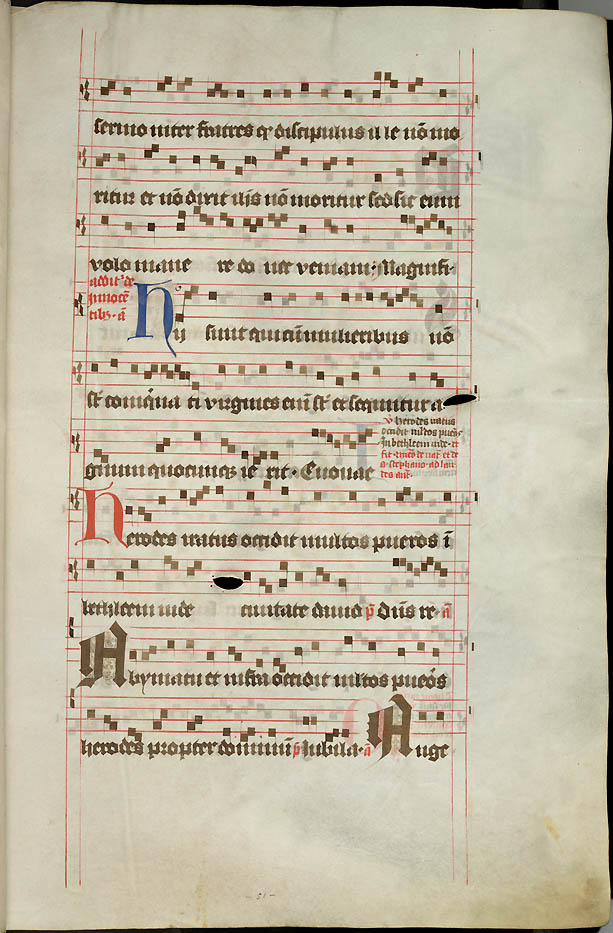 sermo inter fratres qr discipulus il le nō mo
ritur et nō dixit ih̄s nō moritur sed sic eum
volo mane re do nec veniam; Magnifi-
addit' de
innocē
tib9 · ā
Hij sunt qui cū mulieribus nō
st̄ coinq̄na ti virgines enī st̄ et sequuntur a-
gnum quocumq3 ie rit · Euouae
V̄ herodes iratus
occidit m̄ltos pueros
In bethleem iude · et
a stephano · ad lau
des añ.
Herodes iratus occidit multos pueros ī
bethleem iude ciuitate dauid p̄ Dn̄s re · ā
A bymatu et infra occidit m̄ltos pueōs
herodes propter dominū p̄ Iubila · ā Ange
- 51 -